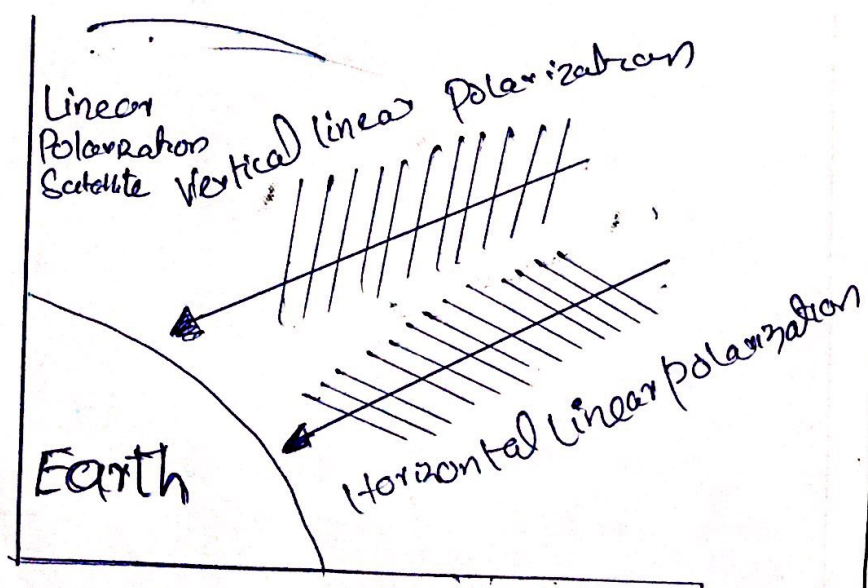 Linear
Polarization
Satellite
Vertical linear polarization
Horizontal Linear polarization
Earth